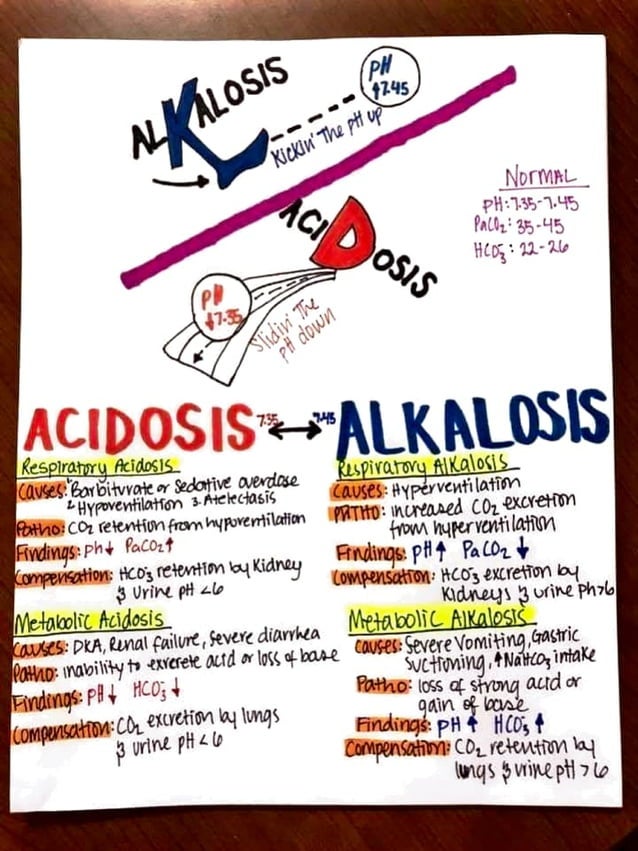 ALKALOSIS
PH
↑7.45
Kickin' The pH up
NORMAL
PH: 7.35-7.45
PaCO₂: 35-45
HCO₃⁻: 22-26
ACIDOSIS
PH
↓7.35
Slidin' The
pH down
ACIDOSIS 7.35 ↔ 7.45 ALKALOSIS
Respiratory Acidosis
Causes: 1. Barbiturate or Sedative overdose
2. Hypoventilation 3. Atelectasis
Patho: CO₂ retention from hypoventilation
Findings: ph↓ PaCO₂↑
Compensation: HCO₃⁻ retention by Kidney
& Urine pH <6
Metabolic Acidosis
Causes: DKA, Renal failure, Severe diarrhea
Patho: inability to exrerete acid or loss of base
Findings: PH↓ HCO₃⁻↓
Compensation: CO₂ excretion by lungs
& Urine pH <6
Respiratory Alkalosis
Causes: Hyperventilation
PATHO: increased CO₂ excretion
from hyperventilation
Findings: pH↑ PaCO₂↓
Compensation: HCO₃⁻ excretion by
Kidneys & urine Ph>6
Metabolic Alkalosis
Causes: Severe Vomiting, Gastric
Suctioning, ↑NaHCO₃ intake
Patho: loss of strong acid or
gain of base
Findings: pH↑ HCO₃⁻↑
Compensation: CO₂ retention by
lungs & urine pH >6